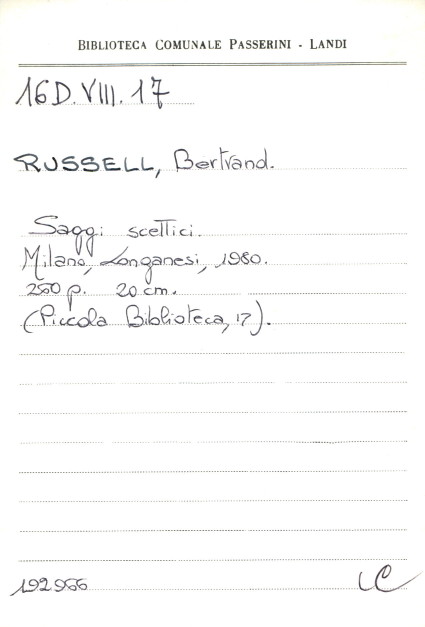 BIBLIOTECA COMUNALE PASSERINI - LANDI
16D.VIII.17
RUSSELL, Bertrand.
Saggi scettici.
Milano, Longanesi, 1980.
250 p. 20 cm.
(Piccola Biblioteca, 17).
192966